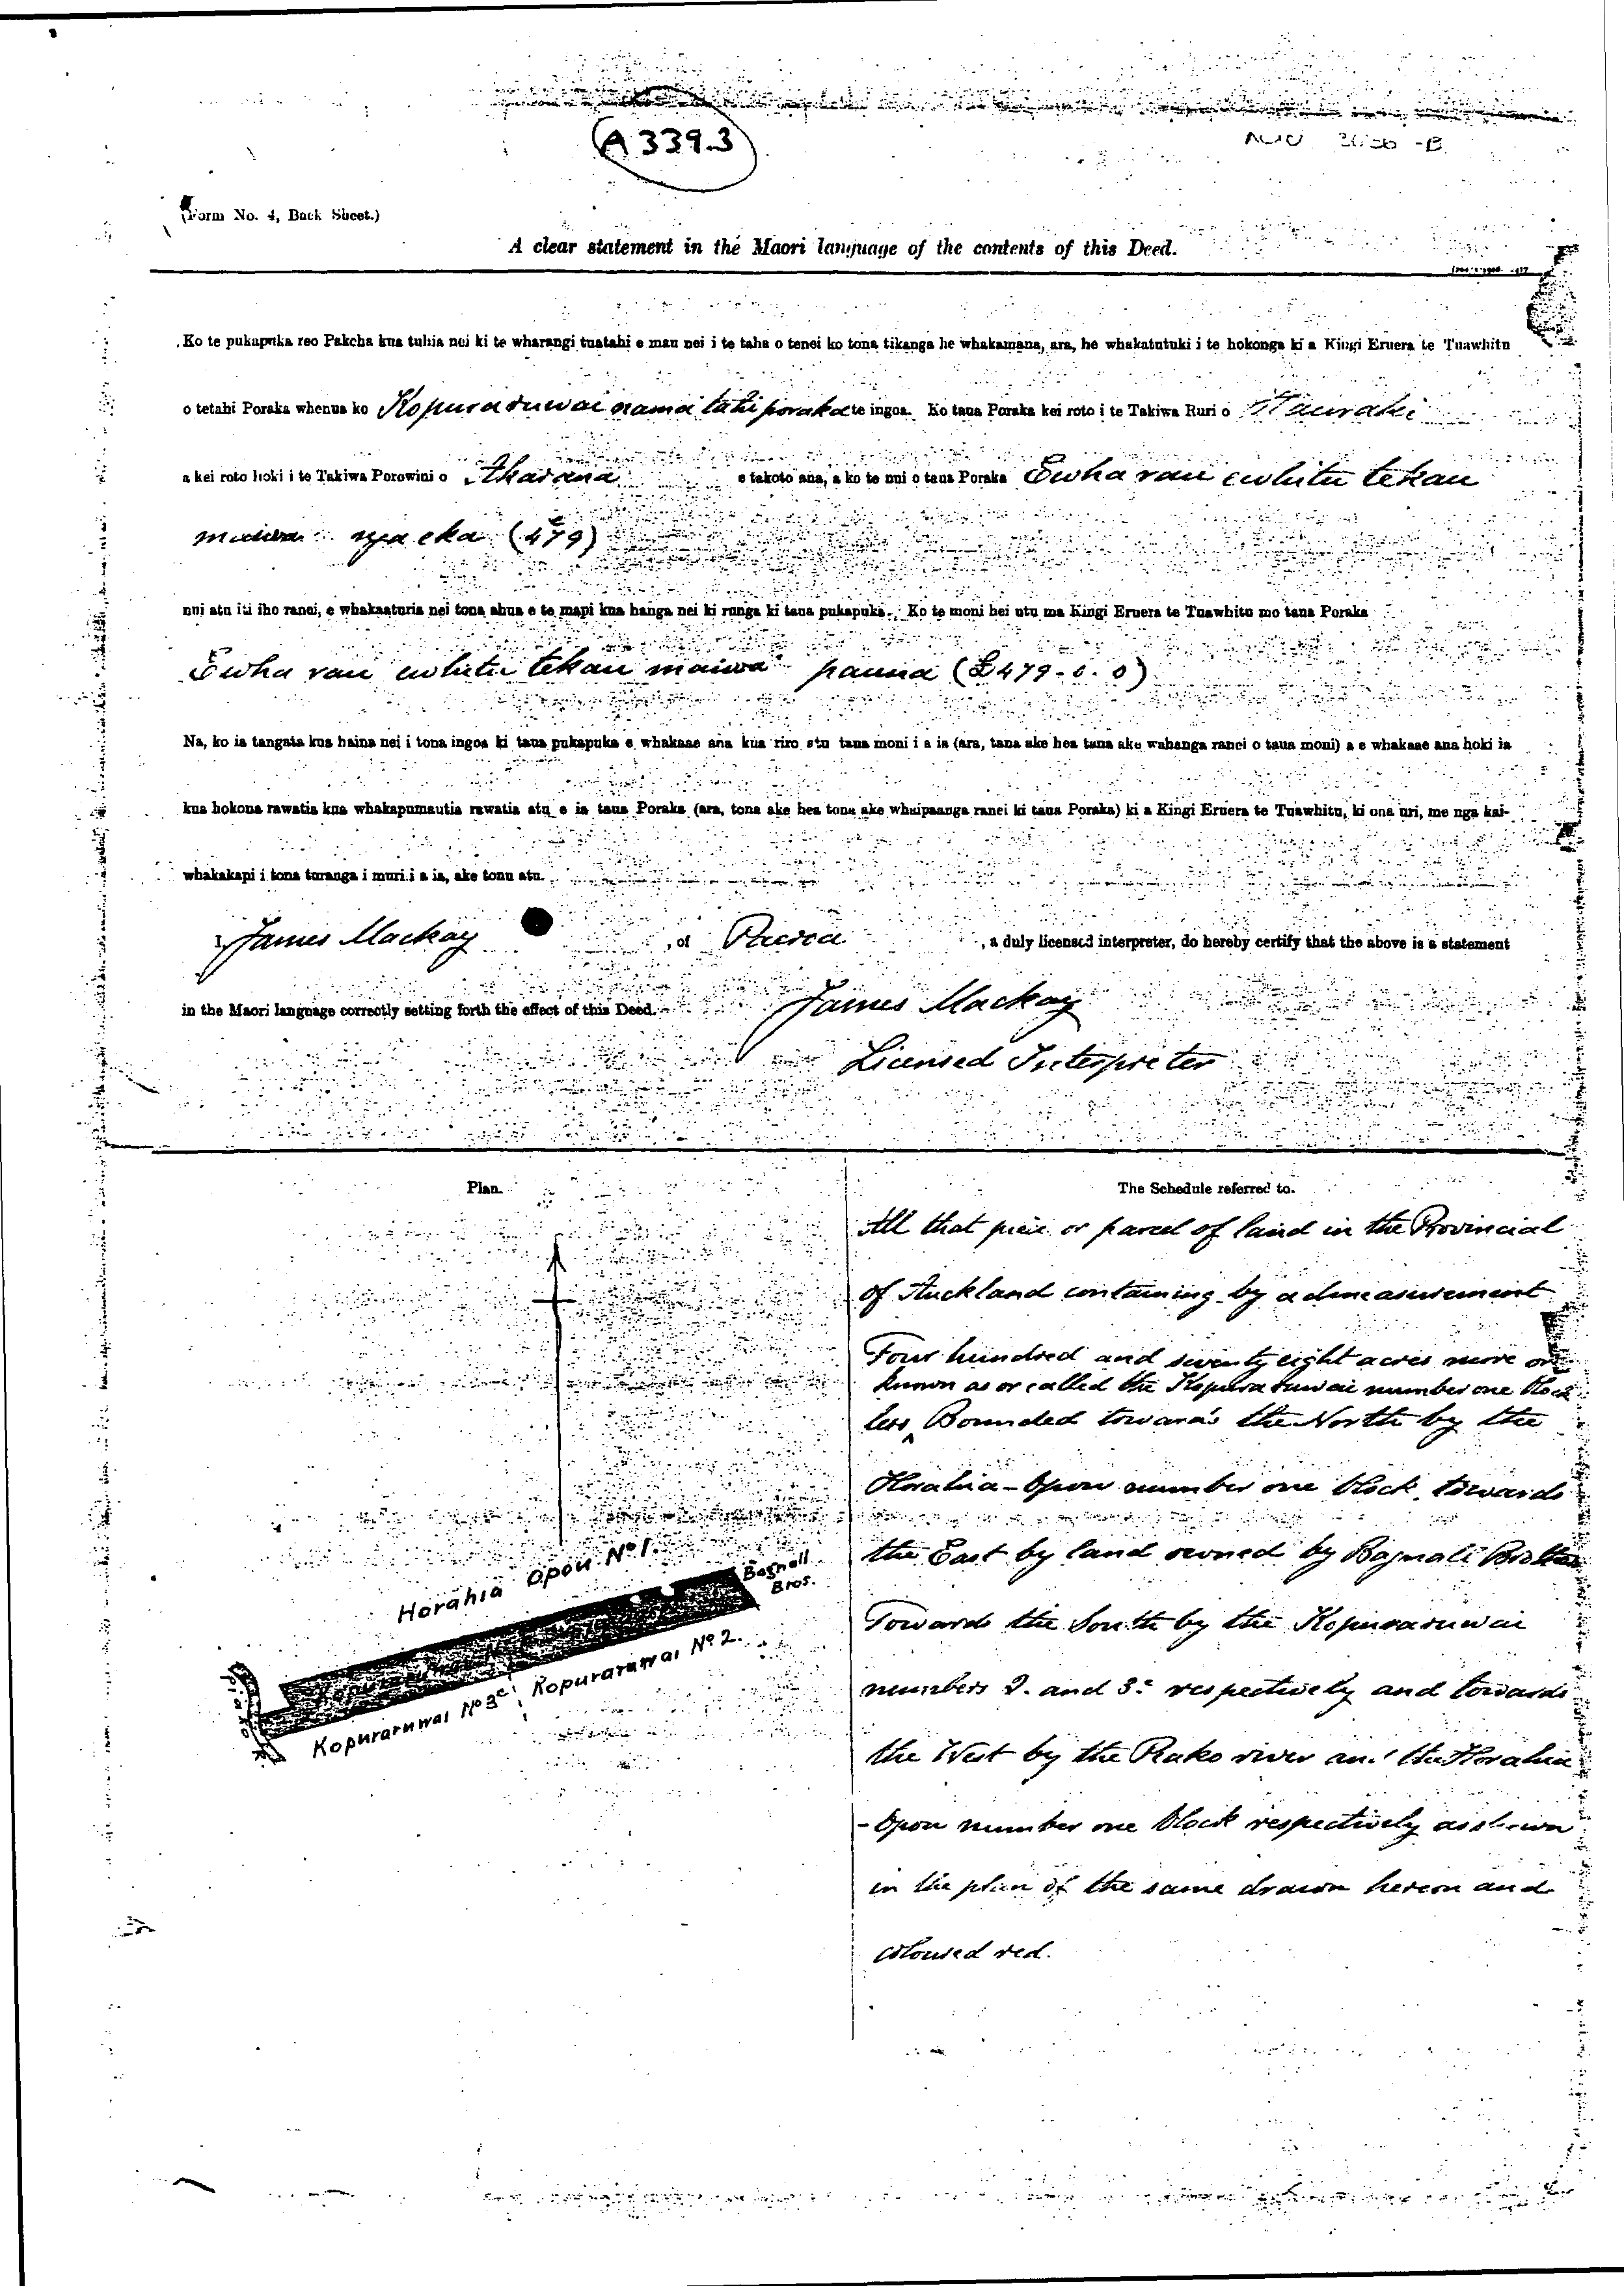 A 339.3
(Form No. 4, Back Sheet.)
A clear statement in the Maori language of the contents of this Deed.
Ko te pukapuka reo Pakeha kua tuhia nei ki te wharangi tuatahi e mau nei i te taha o tenei ko tona tikanga he whakamana, ara, he whakatutuki i te hokonga ki a Kingi Eruera te Tuawhitu
o tetahi Poraka whenua ko Kopuraruwai nama tahi poraka te ingoa. Ko taua Poraka kei roto i te Takiwa Ruri o Hauraki
a kei roto hoki i te Takiwa Porowini o Akarana e takoto ana, a ko te nui o taua Poraka Ewha rau ewhitu tekau
maiwa nga eka (479)
nui atu iti iho ranei, e whakaaturia nei tona ahua e te mapi kua hanga nei ki runga ki taua pukapuka. Ko te moni hei utu ma Kingi Eruera te Tuawhitu mo taua Poraka
Ewha rau ewhitu tekau maiwa pauna (£479-0.0)
Na, ko ia tangata kua haina nei i tona ingoa ki taua pukapuka e whakaae ana kua riro atu taua moni i a ia (ara, tana ake hea tana ake wahanga ranei o taua moni) a e whakaae ana hoki ia
kua hokona rawatia kua whakapumautia rawatia atu e ia taua Poraka (ara, tona ake hea tona ake whaipaanga ranei ki taua Poraka) ki a Kingi Eruera te Tuawhitu, ki ona uri, me nga kai-
whakakapi i tona turanga i muri i a ia, ake tonu atu.
I James Mackay, of Paeroa, a duly licensed interpreter, do hereby certify that the above is a statement
in the Maori language correctly setting forth the effect of this Deed. James Mackay
Licensed Interpreter
Plan.
Horahia Opou No 1.
Bagnall
Bros.
Kopuraruwai No 3c Kopuraruwai No 2.
The Schedule referred to.
All that piece or parcel of land in the Provincial
of Auckland containing by admeasurement
Four hundred and seventy eight acres more or
known as or called the Kopuraruwai number one block
less Bounded towards the North by the
Horahia-Opou number one block towards
the East by land owned by Bagnall Brothers
Towards the South by the Kopuraruwai
numbers 2. and 3c respectively and towards
the West by the Piako river and the Horahia
-Opou number one block respectively as shown
in the plan of the same drawn hereon and
coloured red.